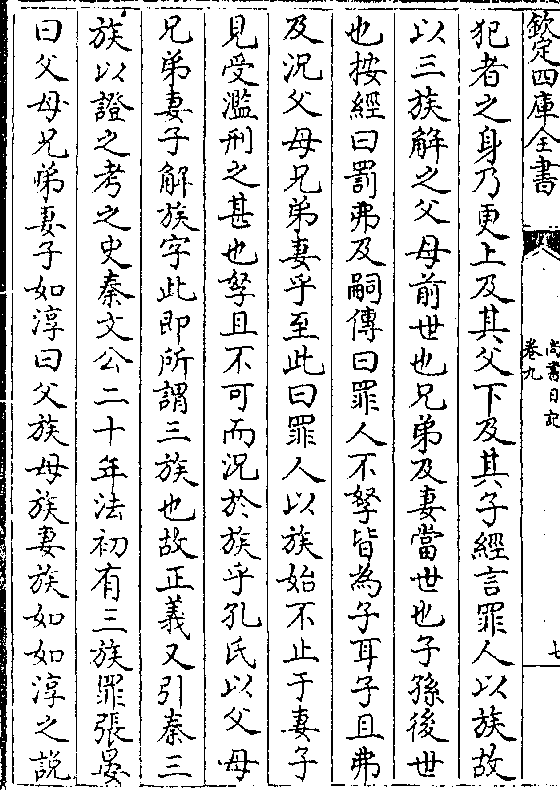 欽定四庫全書
尚書日記
卷九
七
犯者之身乃更上及其父下及其子經言罪人以族故
以三族解之父母前世也兄弟及妻當世也子孫後世
也按經曰罰弗及嗣傳曰罪人不孥皆為子耳子且弗
及況父母兄弟妻乎至此曰罪人以族始不止于妻子
見受濫刑之甚也孥且不可而況於族乎孔氏以父母
兄弟妻子解族字此即所謂三族也故正義又引秦三
族以證之考之史秦文公二十年法初有三族罪張晏
曰父母兄弟妻子如淳曰父族母族妻族如如淳之說